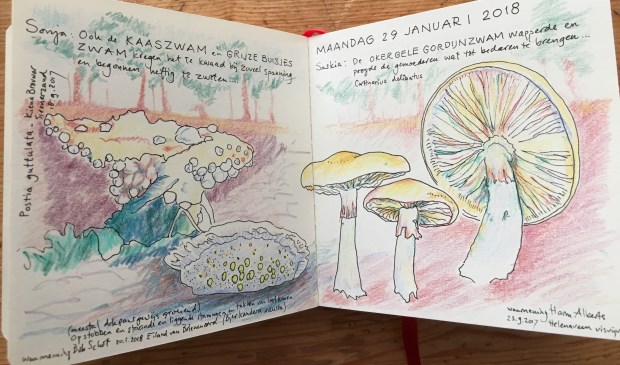 Sonja: Ook de KAASZWAM en GRIJZE BUISJES
ZWAM kregen het te kwaad bij zoveel spanning
en begonnen heftig te zweten...
Postia guttulata - Kleine Brouwer
.9.2017
(meestal dakpansgewijs groeiend)
Op stobben en staande en liggende stammen en takken van loofbomen
waarneming Bob Schut 20.1.2018 Eiland van Brienenoord (Bjerkandera adusta)
MAANDAG 29 JANUARI 2018
Saskia: De OKERGELE GORDIJNZWAM wapperde en
poogde de gemoederen wat tot bedaren te brengen...
Cortinarius delibutus
waarneming Harm Alberts
23.9.2017
Helenaveen